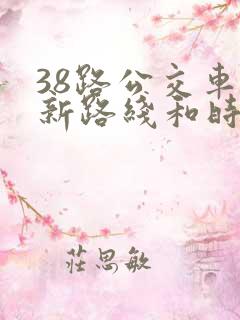 38路公交車
新路綫和時
莊思敏